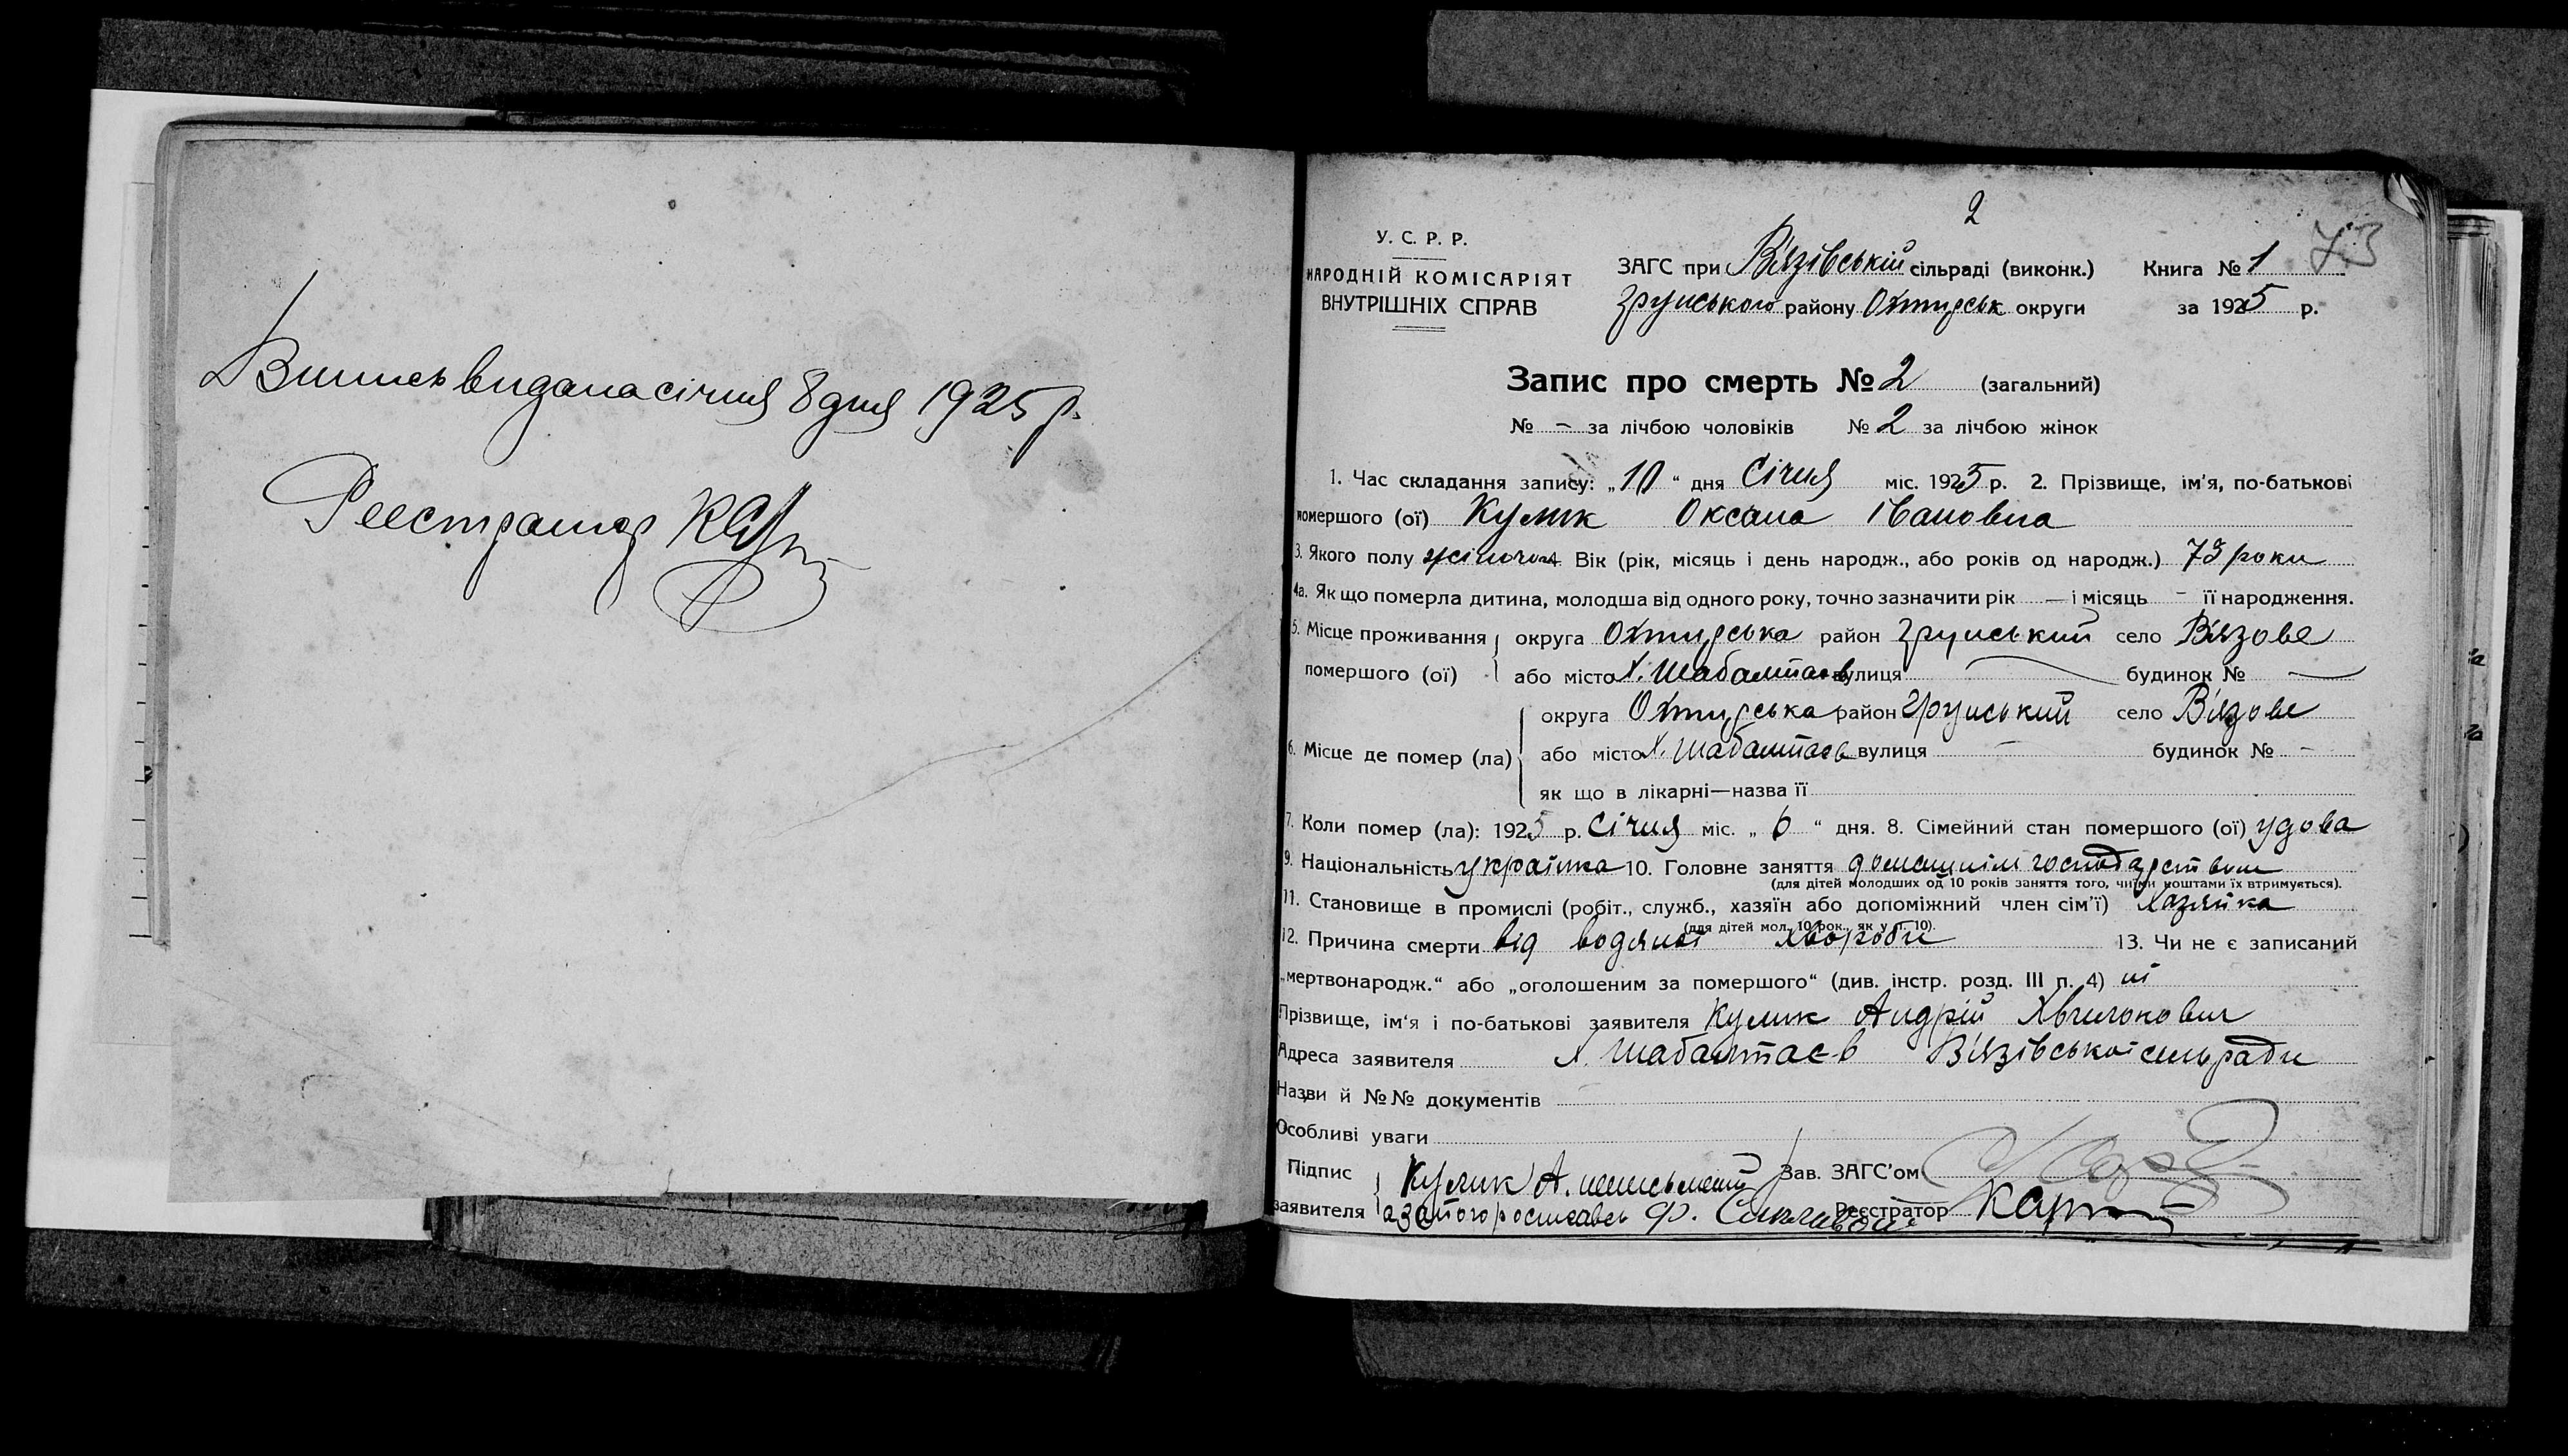 Випись видана січня 8 дня 1925 р.
Реєстратор
2
73
У. С. Р. Р.
НАРОДНІЙ КОМІСАРІЯТ
ВНУТРІШНІХ СПРАВ
ЗАГС при Вязівській сільраді (виконк.) Книга № 1
Груньского району Охтирськ округи за 1925 р.
Запис про смерть № 2 (загальний)
№ - за лічбою чоловіків № 2 за лічбою жінок
1. Час складання запису: „10“ дня Січня міс. 1925 р. 2. Прізвище, ім'я, по-батькові
помершого (ої) Кулик Оксана Івановна
3. Якого полу жіночоі Вік (рік, місяць і день народж., або років од народж.) 73 роки
4а. Як що померла дитина, молодша від одного року, точно зазначити рік — і місяць - її народження.
5. Місце проживання округа Охтирська район Груньский село Вязове
помершого (ої) або місто Х. Шабалтаєв вулиця — будинок № —
округа Охтирська район Груньский село Вязове
6. Місце де помер (ла) або місто Х. Шабалтаєв вулиця - будинок № -
як що в лікарні—назва її
7. Коли помер (ла): 1925 р. Січня міс. „6“ дня. 8. Сімейний стан помершого (ої) удова
9. Національність українка 10. Головне заняття домашнім господарством
(для дітей молодших од 10 років заняття того, чиїми коштами їх втримується).
11. Становище в промислі (робіт., служб., хазяїн або допоміжний член сім'ї) Хазяйка
(для дітей мол. 10 рок., як у п. 10).
12. Причина смерти від водяної хвороби 13. Чи не є записаний
„мертвонародж.“ або „оголошеним за помершого“ (див. інстр. розд. III п. 4) ні
Прізвище, ім'я і по-батькові заявителя Кулик Андрій
Адреса заявителя Х. Шабалтаєв Вязівської сільради
Назви й №№ документів
Особливі уваги
Підпис Кулик А. неписьмений Зав. ЗАГС'ом
заявителя а за його росписавсь Ф. Реєстратор